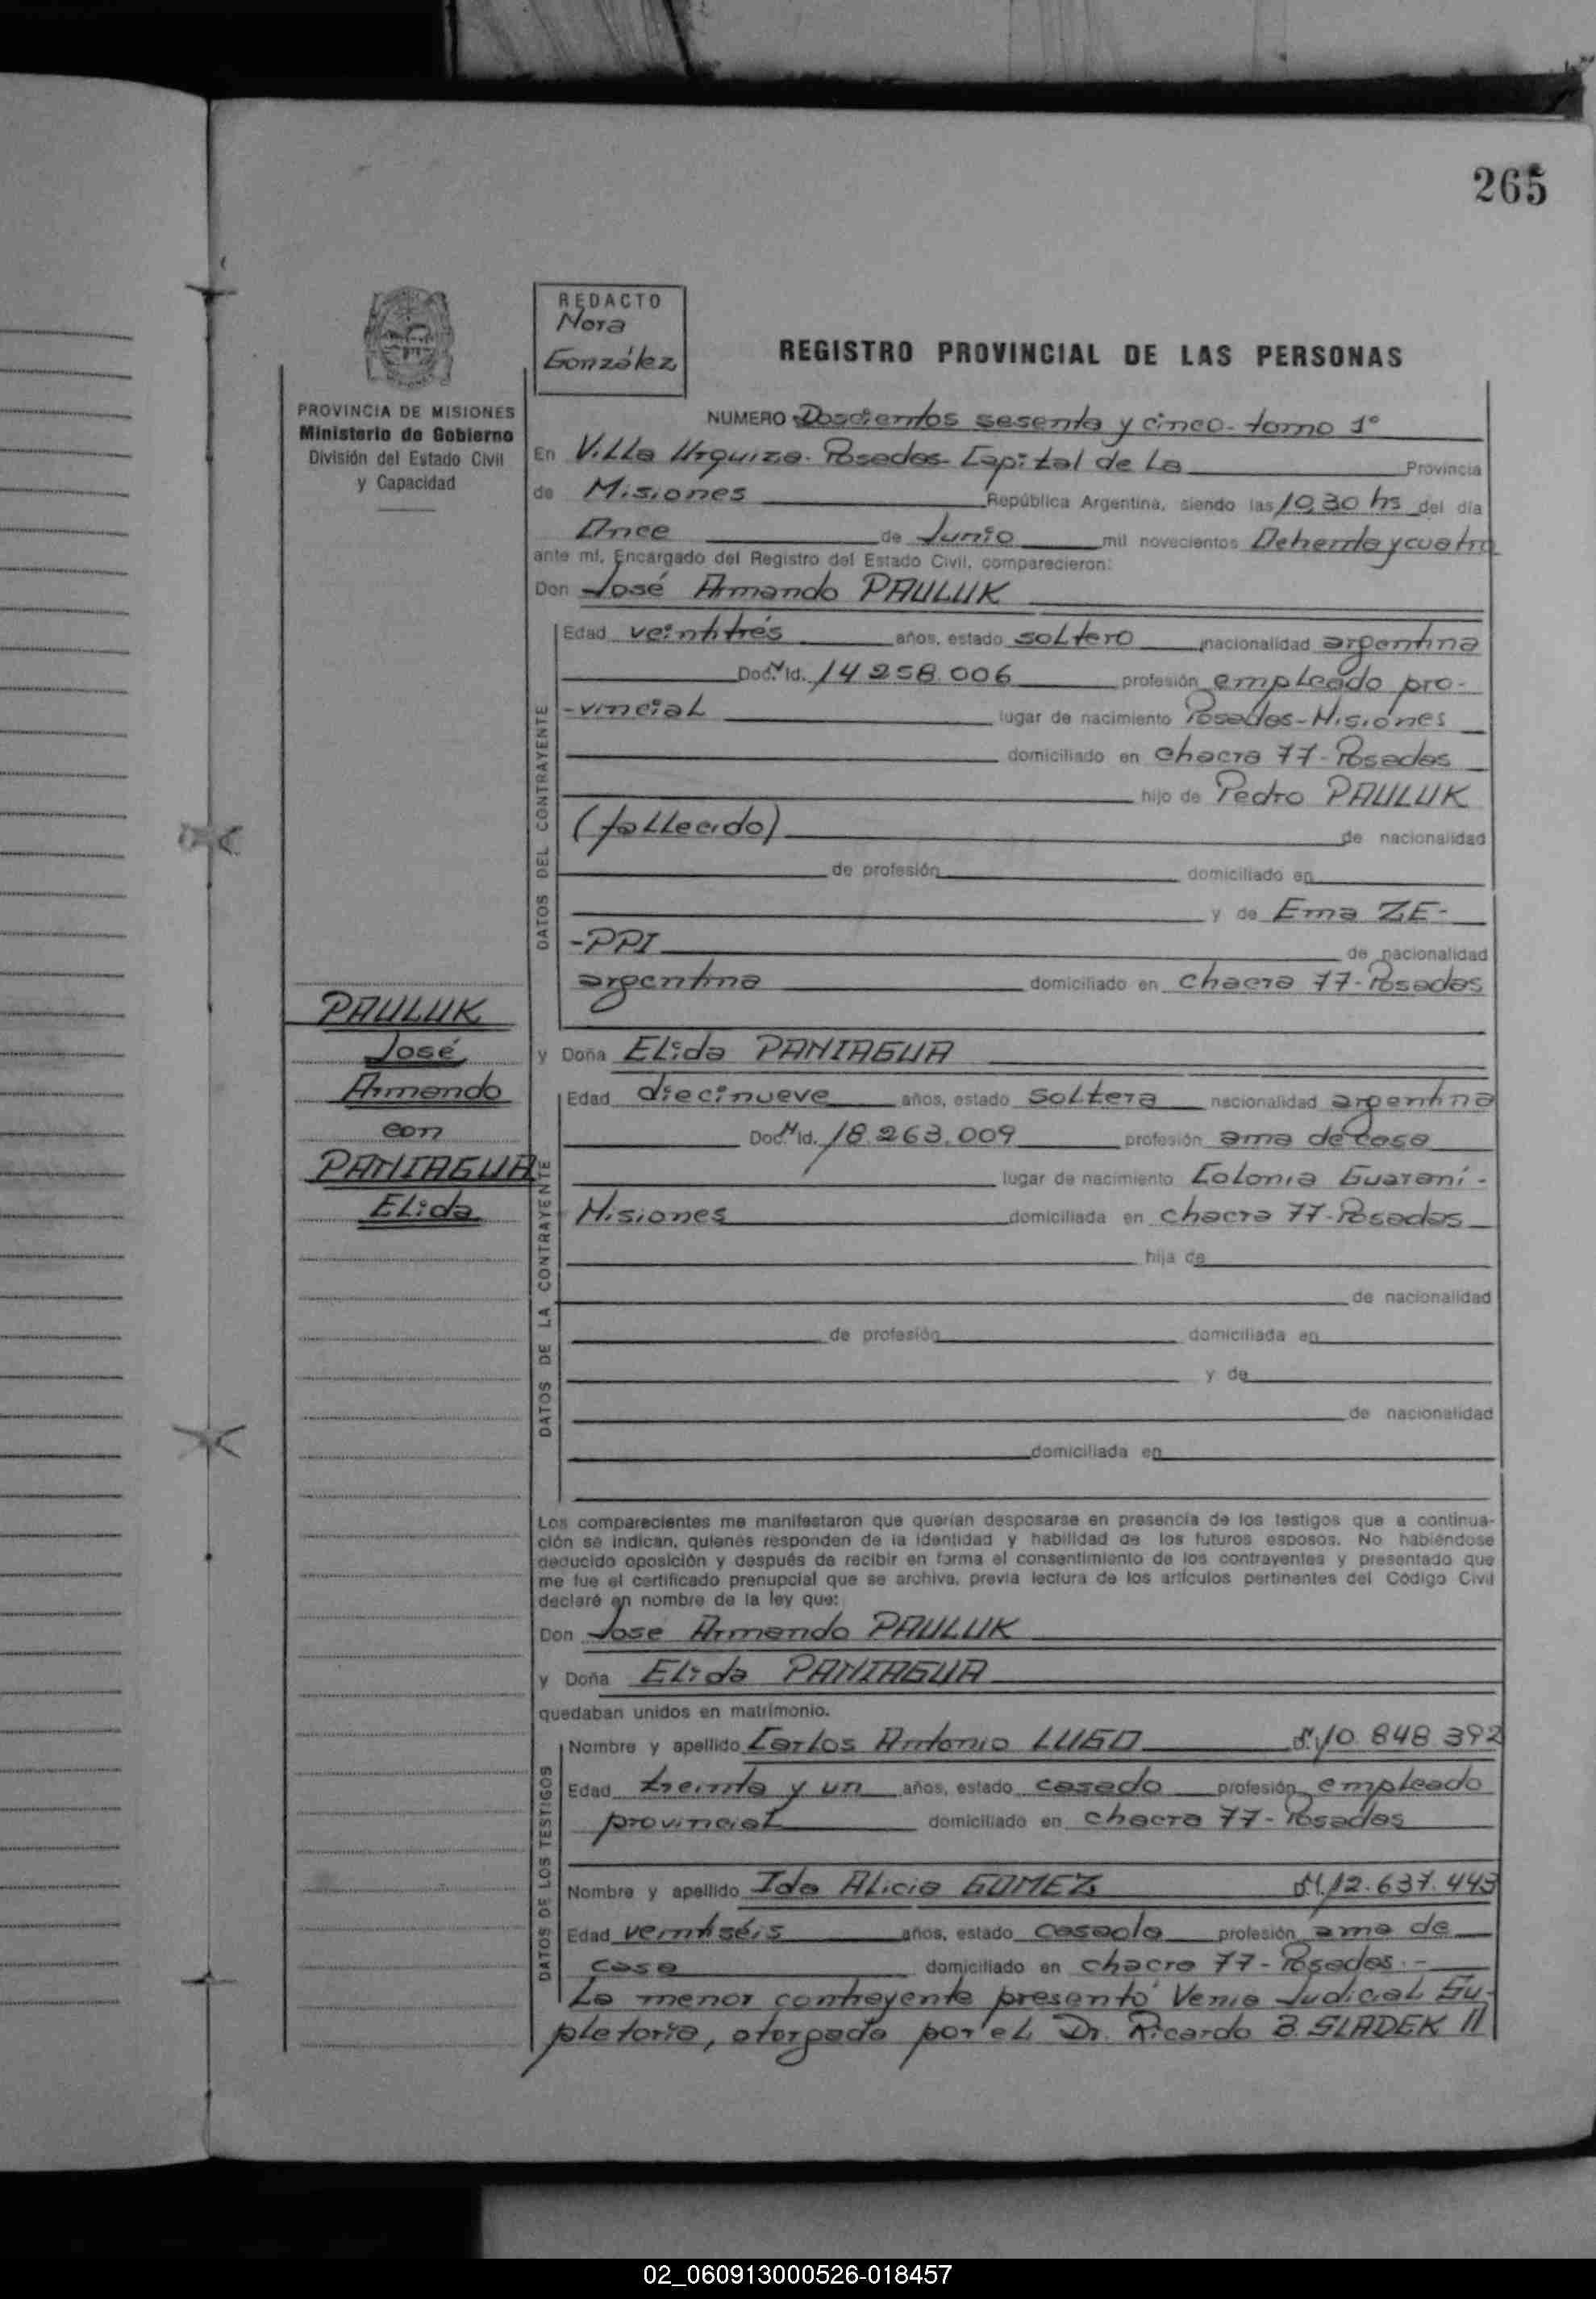 265
REDACTO
Nora
González
REGISTRO PROVINCIAL DE LAS PERSONAS
PROVINCIA DE MISIONES
Ministerio de Gobierno
División del Estado Civil
y Capacidad
NUMERO Doscientos sesenta y cinco - tomo 1°
En Villa Urquiza - Posadas - Capital de La Provincia
de Misiones República Argentina, siendo las 10,30 hs del día
Once de Junio mil novecientos Ochenta y cuatro
ante mí, Encargado del Registro del Estado Civil, comparecieron:
Don José Armando PAULUK
DATOS DEL CONTRAYENTE
Edad veintitrés años, estado soltero nacionalidad argentina
Doc. Id. 14.258.006 profesión empleado pro-
-vincial lugar de nacimiento Posadas - Misiones
domiciliado en chacra 77 - Posadas
hijo de Pedro PAULUK
(fallecido) de nacionalidad
de profesión domiciliado en
y de Ema ZE-
-PPI de nacionalidad
argentina domiciliado en chacra 77 - Posadas
PAULUK
José
Armando
con
PANIAGUA
Elida
y Doña Elida PANIAGUA
DATOS DE LA CONTRAYENTE
Edad diecinueve años, estado soltera nacionalidad argentina
Doc. Id. 18.263.009 profesión ama de casa
lugar de nacimiento Colonia Guaraní -
Misiones domiciliada en chacra 77 - Posadas
hija de
de nacionalidad
de profesión domiciliada en
y de
de nacionalidad
domiciliada en
Los comparecientes me manifestaron que querían desposarse en presencia de los testigos que a continua-
ción se indican, quienes responden de la identidad y habilidad de los futuros esposos. No habiéndose
deducido oposición y después de recibir en forma el consentimiento de los contrayentes y presentado que
me fue el certificado prenupcial que se archiva, previa lectura de los artículos pertinentes del Código Civil
declaré en nombre de la ley que:
Don Jose Armando PAULUK
y Doña Elida PANIAGUA
quedaban unidos en matrimonio.
DATOS DE LOS TESTIGOS
Nombre y apellido Carlos Antonio LUGO 10.848.392
Edad treinta y un años, estado casado profesión empleado
provincial domiciliado en chacra 77 - Posadas
Nombre y apellido Ida Alicia GOMEZ 12.637.443
Edad veintiséis años, estado casada profesión ama de
casa domiciliado en chacra 77 - Posadas.-
La menor contrayente presentó Venia Judicial Su-
pletoria, otorgada por el Dr. Ricardo B. SLADEK //
02_060913000526-018457